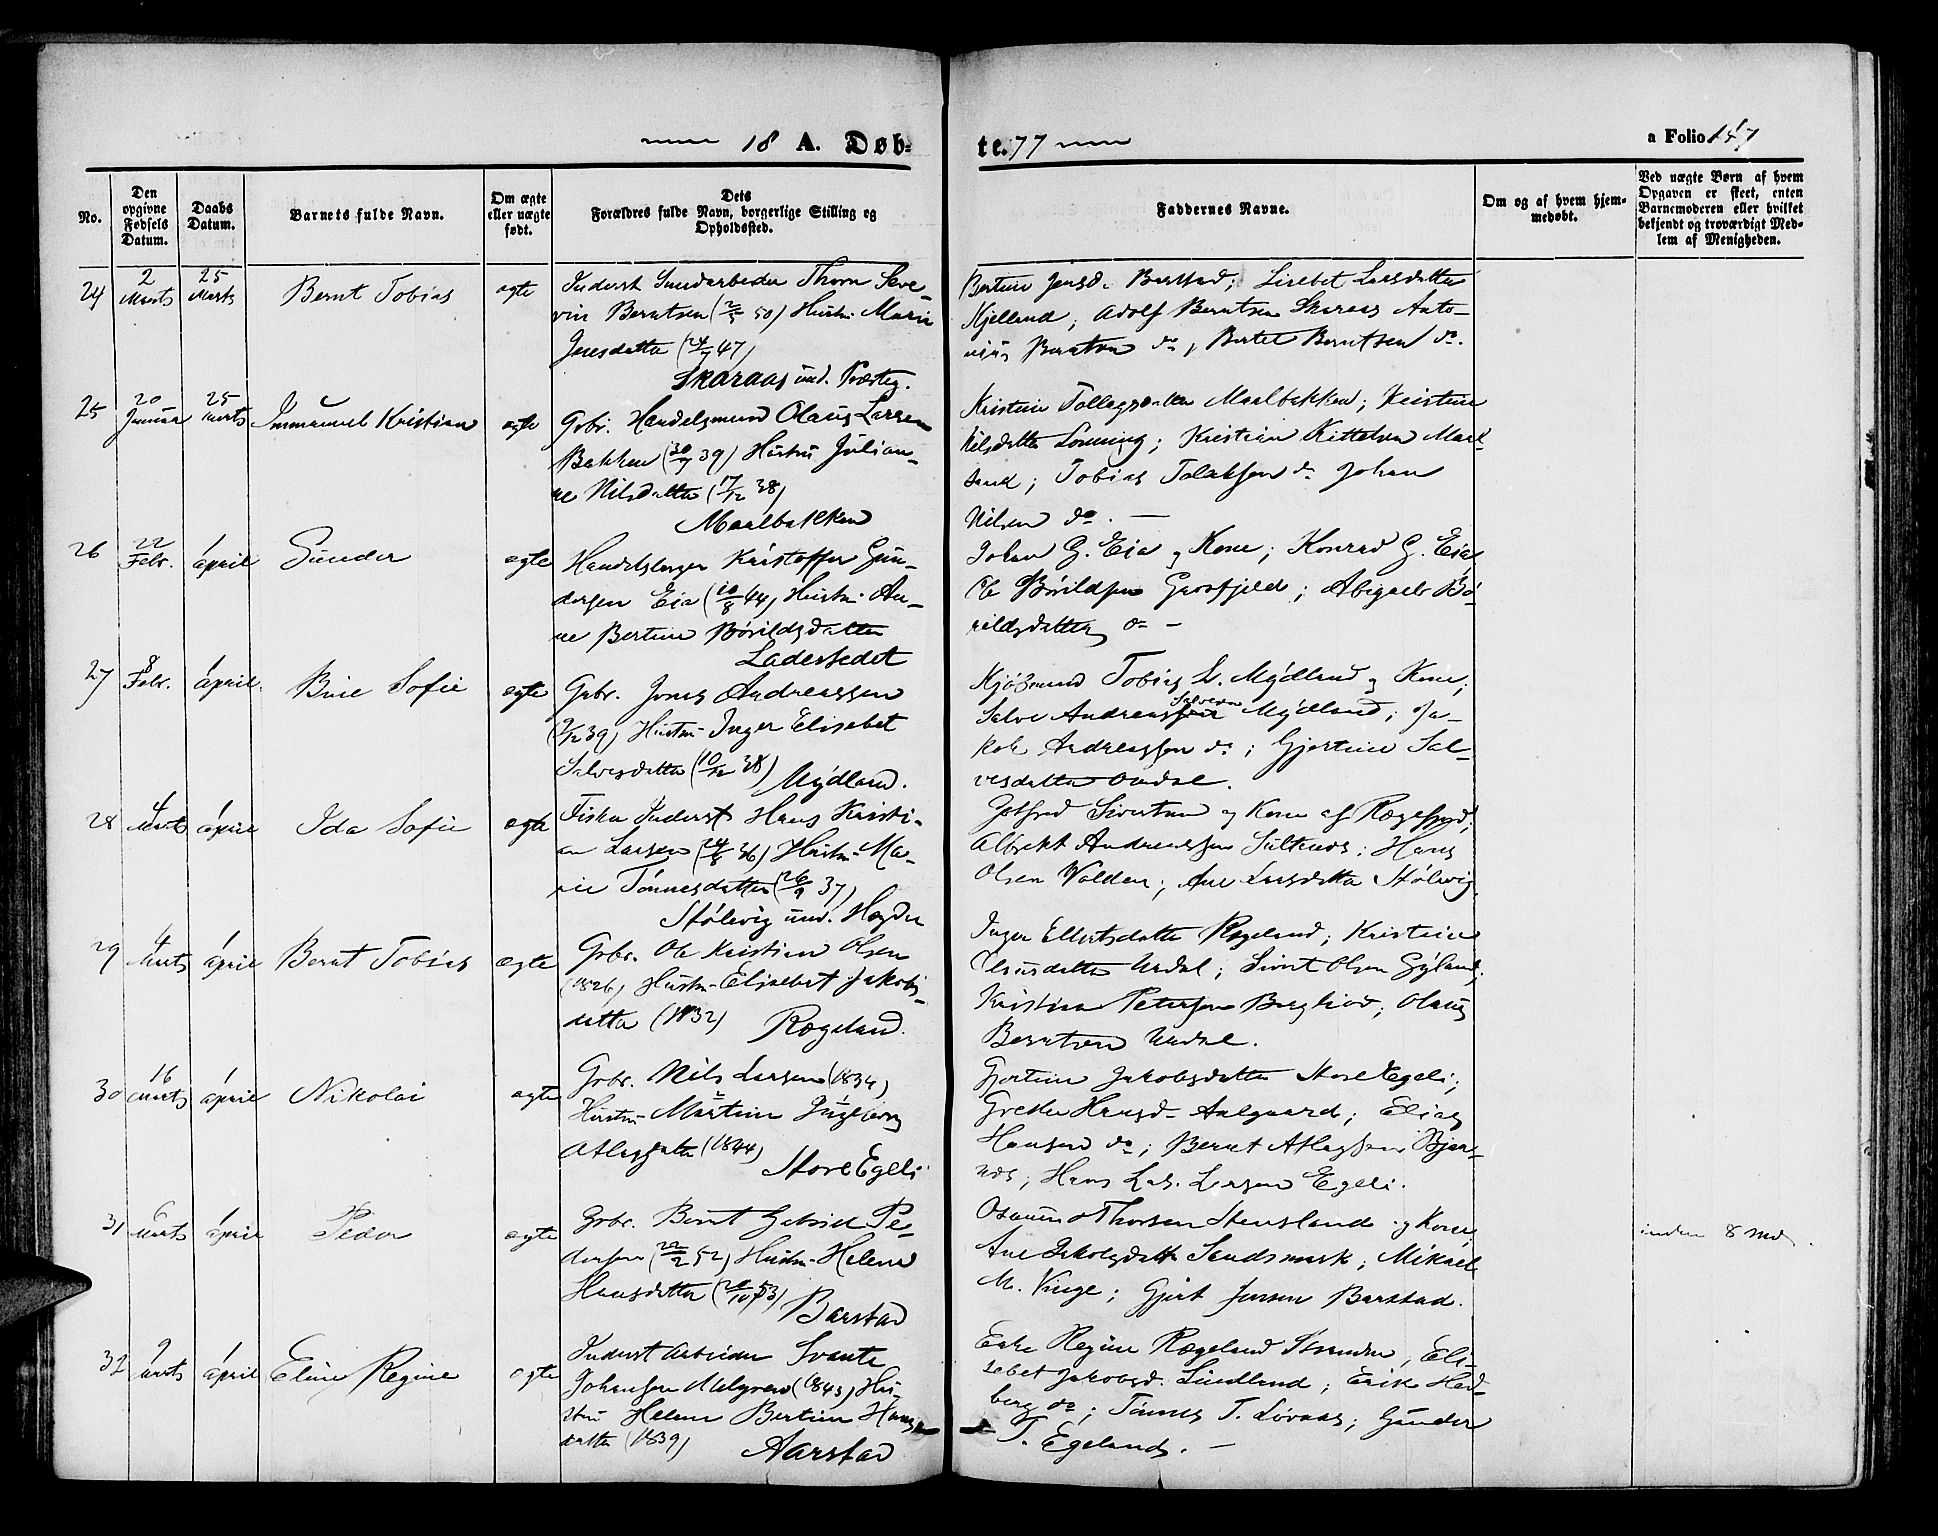 18 A. Døb-
te. 77
a Folio 147
No.
Den opgivne Fødsels Datum.
Daabs Datum.
Barnets fulde Navn.
Om ægte eller uægte født.
Dets Forældres fulde Navn, borgerlige Stilling og Opholdssted.
Faddernes Navne.
Om og af hvem hjem-
medøbt.
Ved uægte Børn af hvem
Opgaven er skeet, enten
Barnemoderen eller hvilket
bekjendt og troværdigt Med-
lem af Menigheden.
24 2 Marts 25 Marts Bernt Tobias ægte
Inderst Thorn Seve-
rin Berntsen ( 50) Hustru Marie
Jensdatter (47)
Skaraas
Bertine Jensd. Barstad; Lisebet Larsdatter
Kjelland; Adolf Berntsen Skaraas Anto-
nius Berntsen do, Bertel Berntsen do.
25 20 Januar 25 Marts Immanuel Kristian ægte
Gbr. Handelsmand Olaus Larsen
Bakken (30/7 39) Hustru Julian-
ne Nilsdatter (17/12 38)
Maalbakken
Kristine Tollagsdatter Maalbakken; Kristine
Nilsdatter Lonning; Kristian Kittelsen
Tobias Tolaksen do Johan
Nilsen do.
26 22 Febr. 1 april Gunder ægte
Handelsborger Kristoffer Gun-
dersen Eia (10/8 44) Hustru An-
ne Bertine Børildsdatter
Ladestedet
Johan G. Eia og Kone; Konrad G. Eia
Ole Børildsen Grosfjeld; Abigael Bø-
rildsdatter do
27 8 Febr. 1 april. Sofie ægte
Gbr. Jonas Andreassen
(39) Hustru Inger Elisebet
Salvesdatter (10/12 38) Mydland.
Kjøbmand Tobias L. Mydland og Kone;
Salve Andreassen Mydland; Ja-
kob Andreassen do; Gjertine Sal-
vesdatter
28 4 Marts 1 april Ida Sofie ægte
Fisker Inderst Hans Kristi-
an Larsen (36) Hustru Ma-
rie Tönnesdatter (26/9 37)
Stölevig und. Hegdø
Gotfred Sivertsen og Kone af Rægefjord;
Albrekt Andreassen
Hans
Olsen Walden; Ane Larsdatter Stölevig.
29 4 Marts 1 april Bernt Tobias ægte
Gbr. Ole Kristian Olsen
(1826) Hustru Elisebet Jakobs-
datter (1832) Rægeland.
Inger Ellertsdatter Rægeland; Kristine
Olausdatter Urdal; Sivert Olsen Gyland,
Kristian Petersen Bergliod; Olaus
Berntsen Urdal.
30 16 Marts 1 april Nikolai ægte
Gbr. Nils Larsen (1834)
Hustru Martine Ingeborg
Atlagsdatter (1844)
Store Egeli
Gjertine Jakobsdatter Store Egeli;
Grethe Hansd. Aalgaard; Elias
Hansen do; Bernt Atlagsen Bjer-
nes; Hans Larsen Egeli.
31 6 Marts 1 april Peder ægte
Gbr. Bernt Gabriel Pe-
dersen (22/2 52) Hustru Helene
Hansdatter (20/10 53)
Barstad
Osmund Thorsen Stensland og Kone;
Ane Jakobsdatter Sandsmark; Mikael
M. Vinge; Gjert Jensen Barstad.
inden 8 Md.
32 9 Marts 1 april Eline Regine ægte
Inderst Arbeider Svante
Johansen Malgren (1843) Hu-
stru Helene Bertine Hans-
datter (1839)
Aarstad
Enke Regine Rægeland; Eli-
sebet Jakobsd. Lindland; Erik Hed-
berg do; Tönnes T. Løvaas; Gunder
T. Egelands.